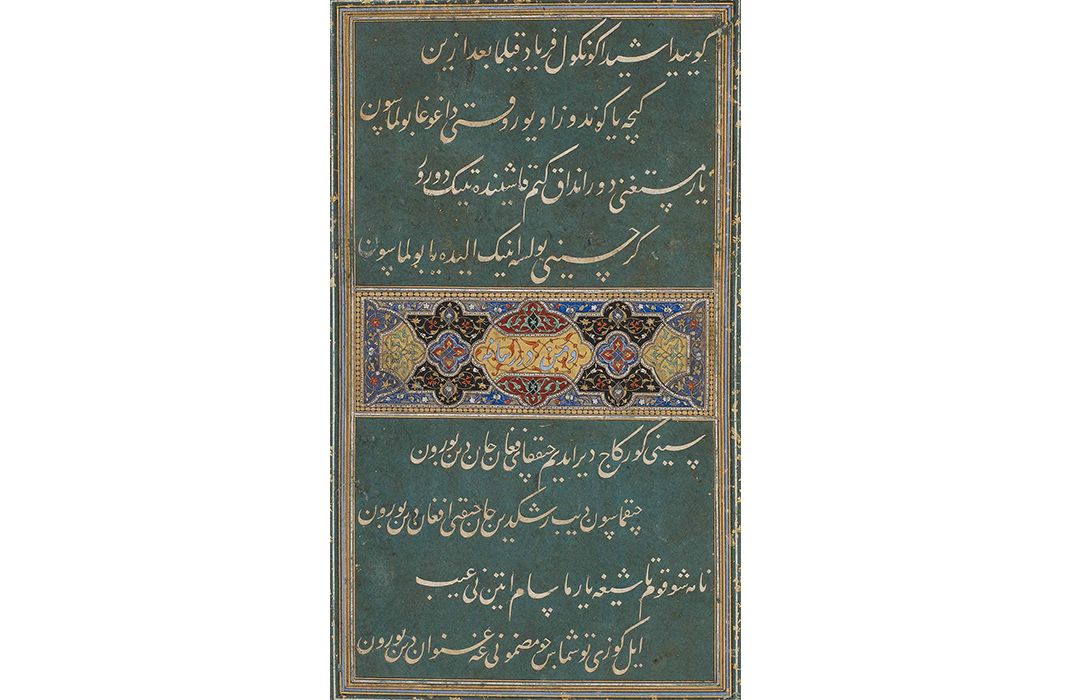 کوییدا شیدا کونکول فریاد قیلما بعد ازین
کیچه یا کوندوز اویور وقتی دا غوغا بولماسون
یار مستغنی دور انداق کیم قاشینده تینک دورور
کر حسینی بولسه انینک الیده یا بولماسون
سینی کورکاج دیر ایدیم چیققای فغان جان دین بورون
چیقماسون دیب رشکیدین جان چیقتی افغان دین بورون
نامه شوقوم تاشیغه یارماسام ایتین نی عیب
ایل کوزی توشماس چو مضمونی غه عنوان دین بورون